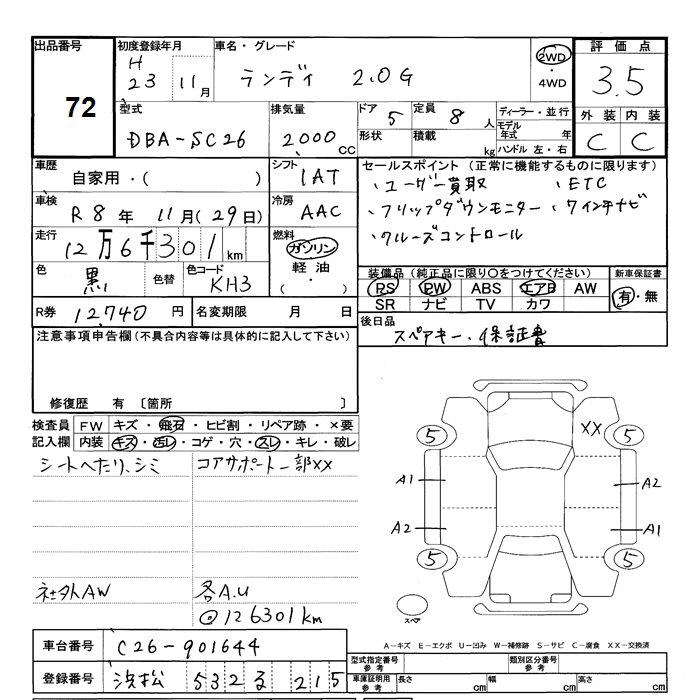 出品番号 初度登録年月 車名・グレード 2WD ・ 4WD 評価点
72 H 23 11月 ランディ 2.0G 3.5
型式 排気量 ドア 5 定員 8人 ディーラー・並行 外装 内装
DBA-SC26 2000cc 形状 積載 kg モデル年式 年 ハンドル 左・右 C C
車歴 自家用・( ) シフト IAT セールスポイント (正常に機能するものに限ります)
車検 R8年 11月(29日) 冷房 AAC ・ユーザー買取 ・ETC
・フリップダウンモニター ・7インチナビ
走行 12万6千301km 燃料 ガソリン ・クルーズコントロール
色 黒 色替 色コード KH3 軽油・( ) 装備品 (純正品に限り○をつけてください) 新車保証書
PS PW ABS エアB AW 有・無
R券 12,740円 名変期限 月 日 SR ナビ TV カワ
注意事項申告欄 (不具合内容等は具体的に記入して下さい) 後日品 スペアキー・保証書
修復歴 有 〔箇所 〕
検査員 FW キズ・飛石・ヒビ割・リペア跡・×要
記入欄 内装 キズ・汚レ・コゲ・穴・スレ・キレ・破レ
シートへたり、シミ コアサポート一部XX
XX
5 5
A1 A2
A2 A1
5 5
社外AW 各A.U
◎126301km
スペア
車台番号 C26-901644 A−キズ E−エクボ U−凹み W−補修跡 S−サビ C−腐食 XX−交換済
型式指定番号 参考 類別区分番号 参考
登録番号 浜松 532 る 215 車庫証明用 参考 長さ cm 幅 cm 高さ cm